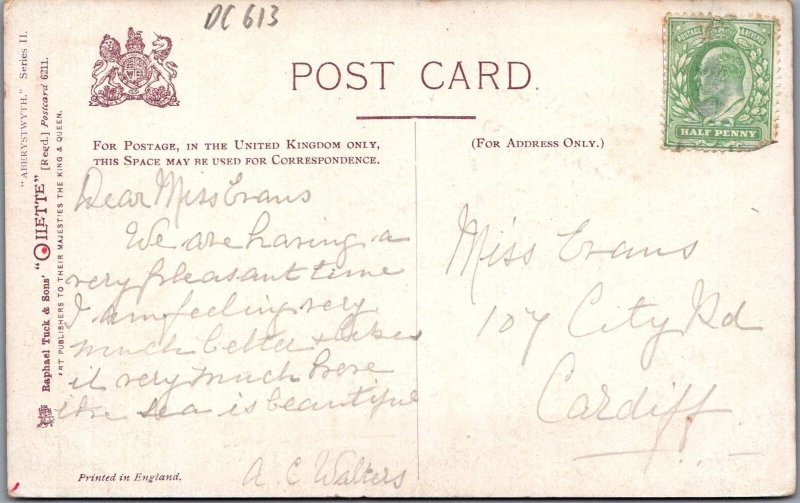 DC 613
POST CARD.
POSTAGE REVENUE
HALF PENNY
FOR POSTAGE, IN THE UNITED KINGDOM ONLY,
THIS SPACE MAY BE USED FOR CORRESPONDENCE.
(FOR ADDRESS ONLY.)
"ABERYSTWYTH." Series II.
Raphael Tuck & Sons' "OILETTE" [Regd.] Postcard 6211.
ART PUBLISHERS TO THEIR MAJESTIES THE KING & QUEEN.
Dear Miss Evans
We are having a
very pleasant time
I am feeling very
much better & likes
it very much here
the sea is beautiful
A. C Walters
Miss Evans
107 City Rd
Cardiff
Printed in England.